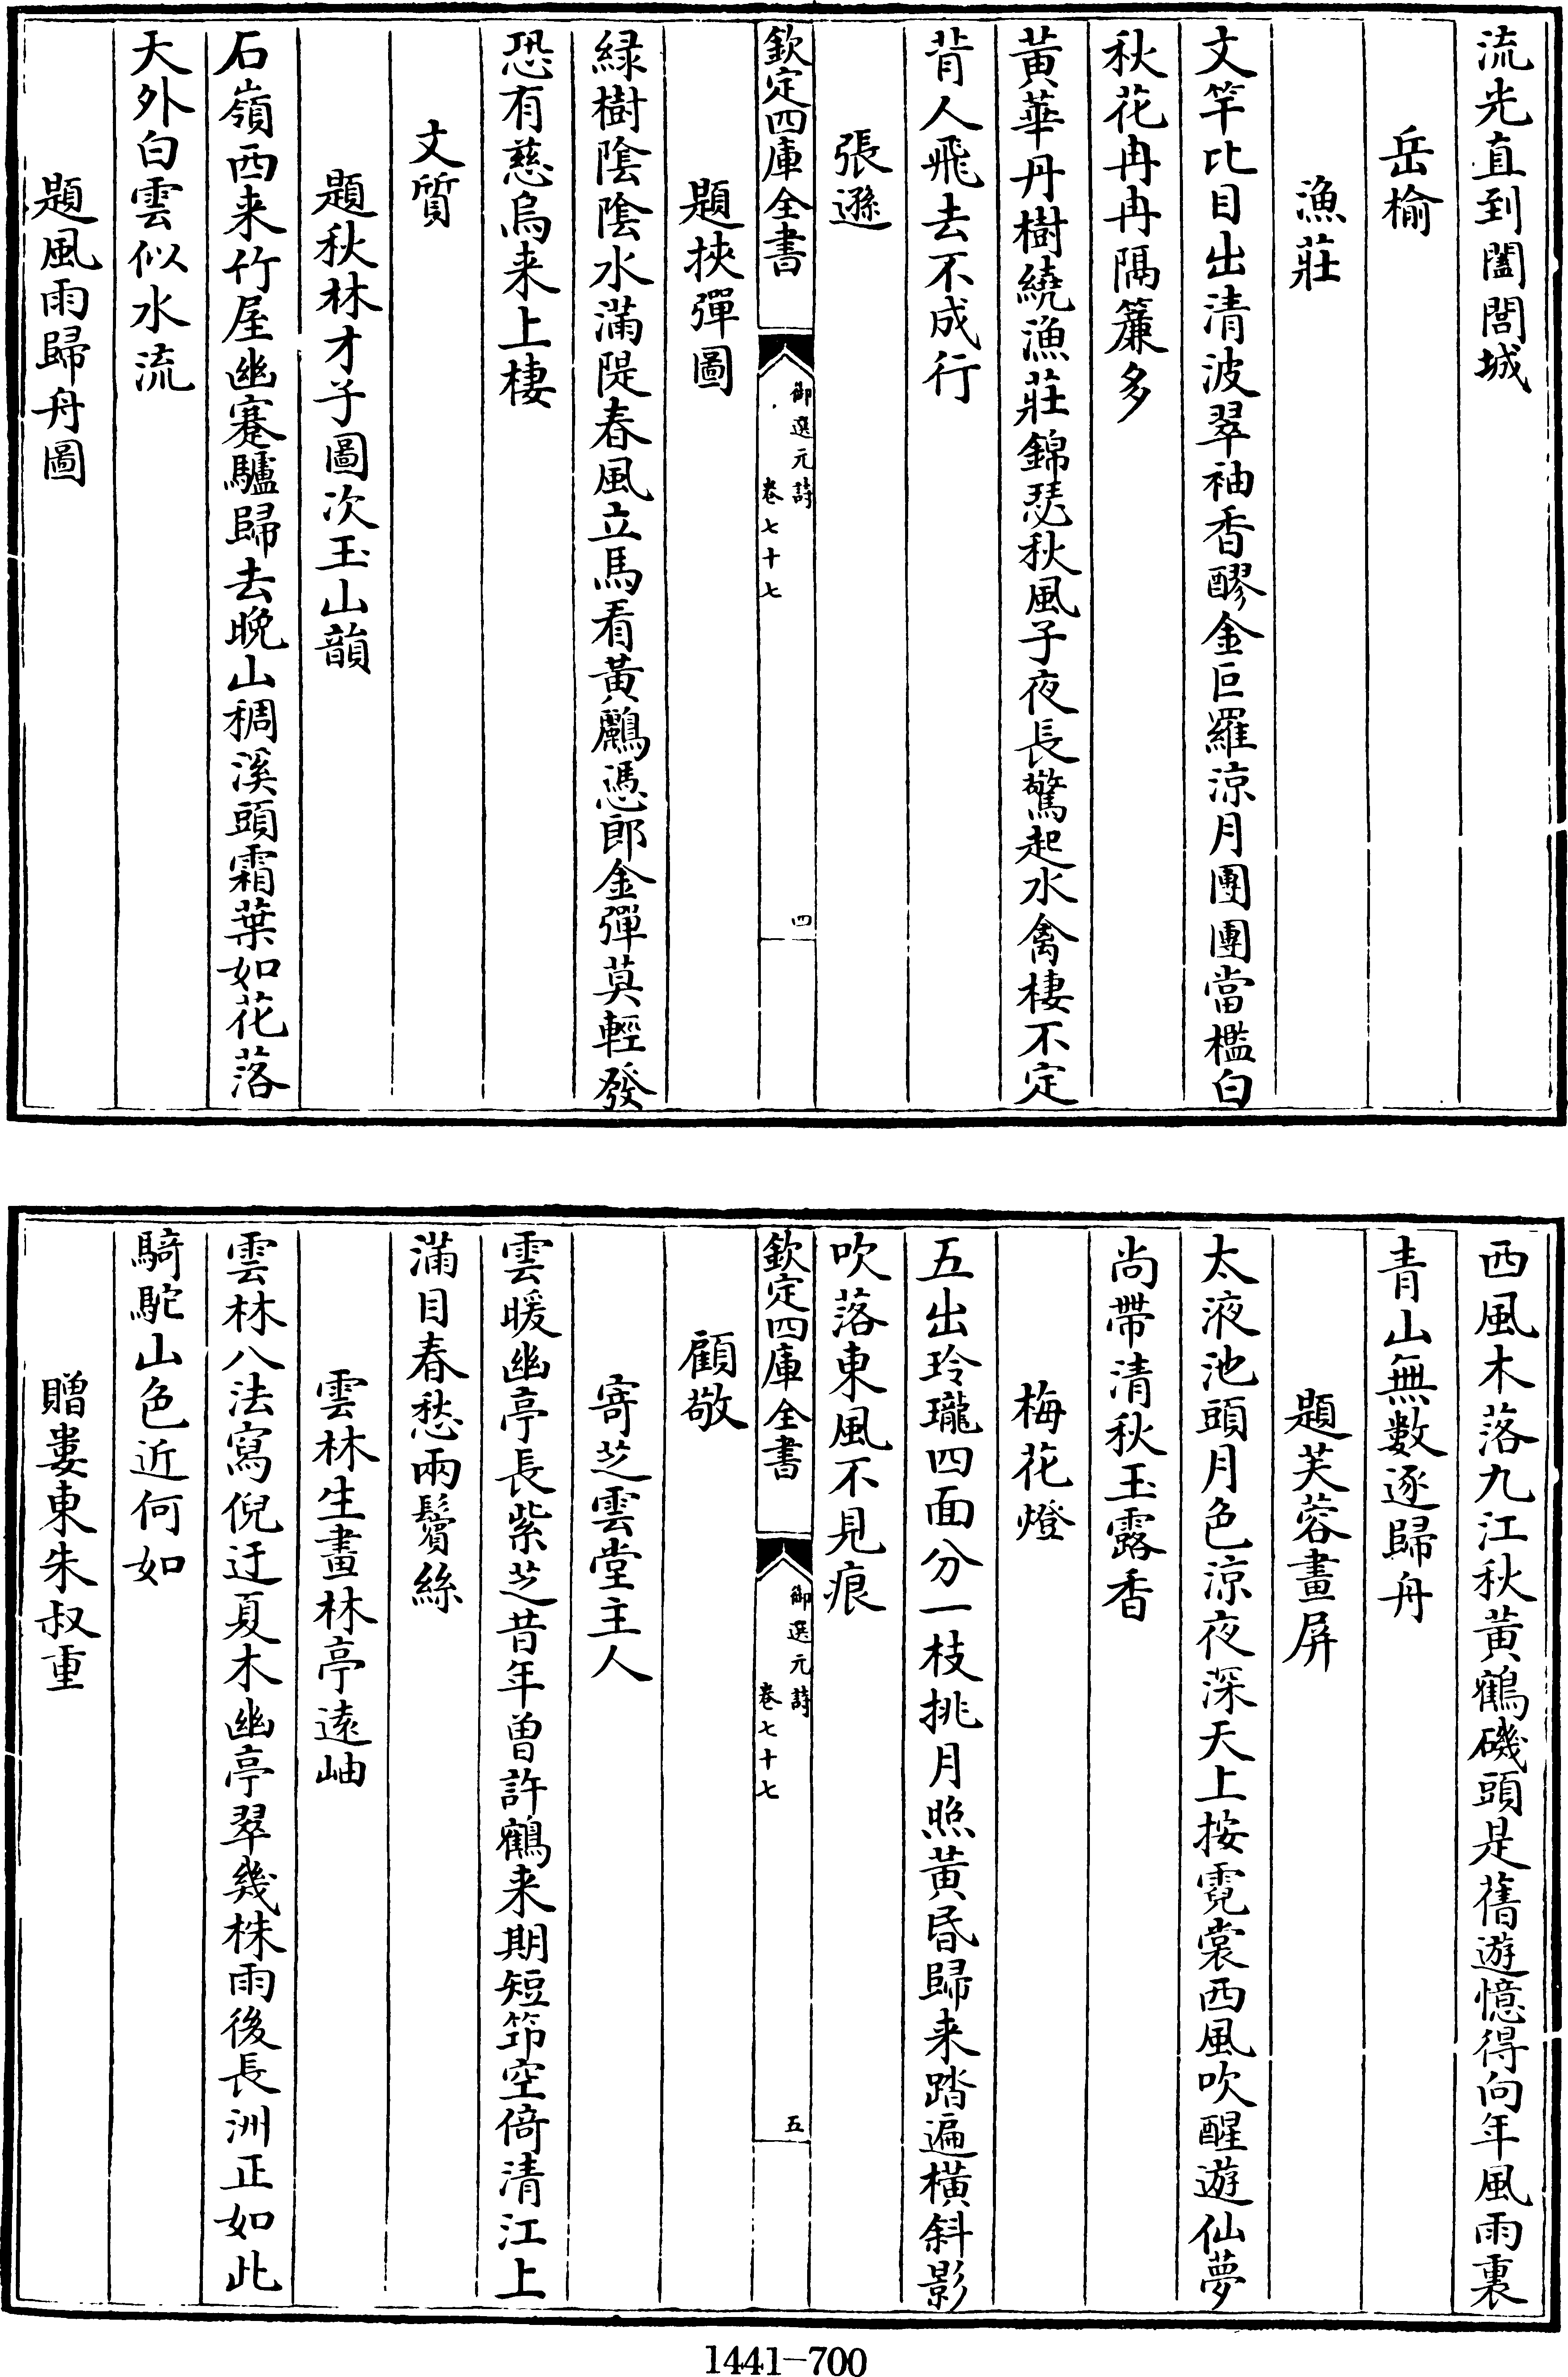 流光直到闔閭城
岳榆
漁莊
文竿比目出清波翠袖香醪金巨羅涼月團團當檻白
秋花冉冉隔簾多
黃華丹樹繞漁莊錦瑟秋風子夜長驚起水禽棲不定
背人飛去不成行
張遜
欽定四庫全書
御選元詩
卷七十七
四
題挾彈圖
緑樹陰陰水滿隄春風立馬看黃鸝憑郎金彈莫輕發
恐有慈烏来上棲
文質
題秋林才子圖次玉山韻
石嶺西来竹屋幽蹇驢歸去晚山稠溪頭霜葉如花落
天外白雲似水流
題風雨歸舟圖
西風木落九江秋黃鶴磯頭是舊遊憶得向年風雨裏
青山無數逐歸舟
題芙蓉畫屏
太液池頭月色涼夜深天上按霓裳西風吹醒遊仙夢
尚帶清秋玉露香
梅花燈
五出玲瓏四面分一枝挑月照黃昏歸来踏遍橫斜影
吹落東風不見痕
欽定四庫全書
御選元詩
卷七十七
五
顧敬
寄芝雲堂主人
雲暖幽亭長紫芝昔年曽許鶴来期短笻空倚清江上
滿目春愁兩鬢絲
雲林生畫林亭遠岫
雲林八法寫倪迂夏木幽亭翠幾株雨後長洲正如此
騎駝山色近何如
贈婁東朱叔重
1441-700